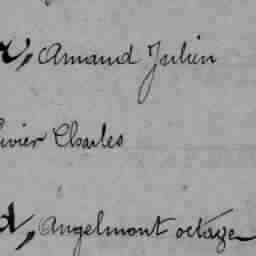 r, Amand Julien
ivier Charles
d, Angelmont octave